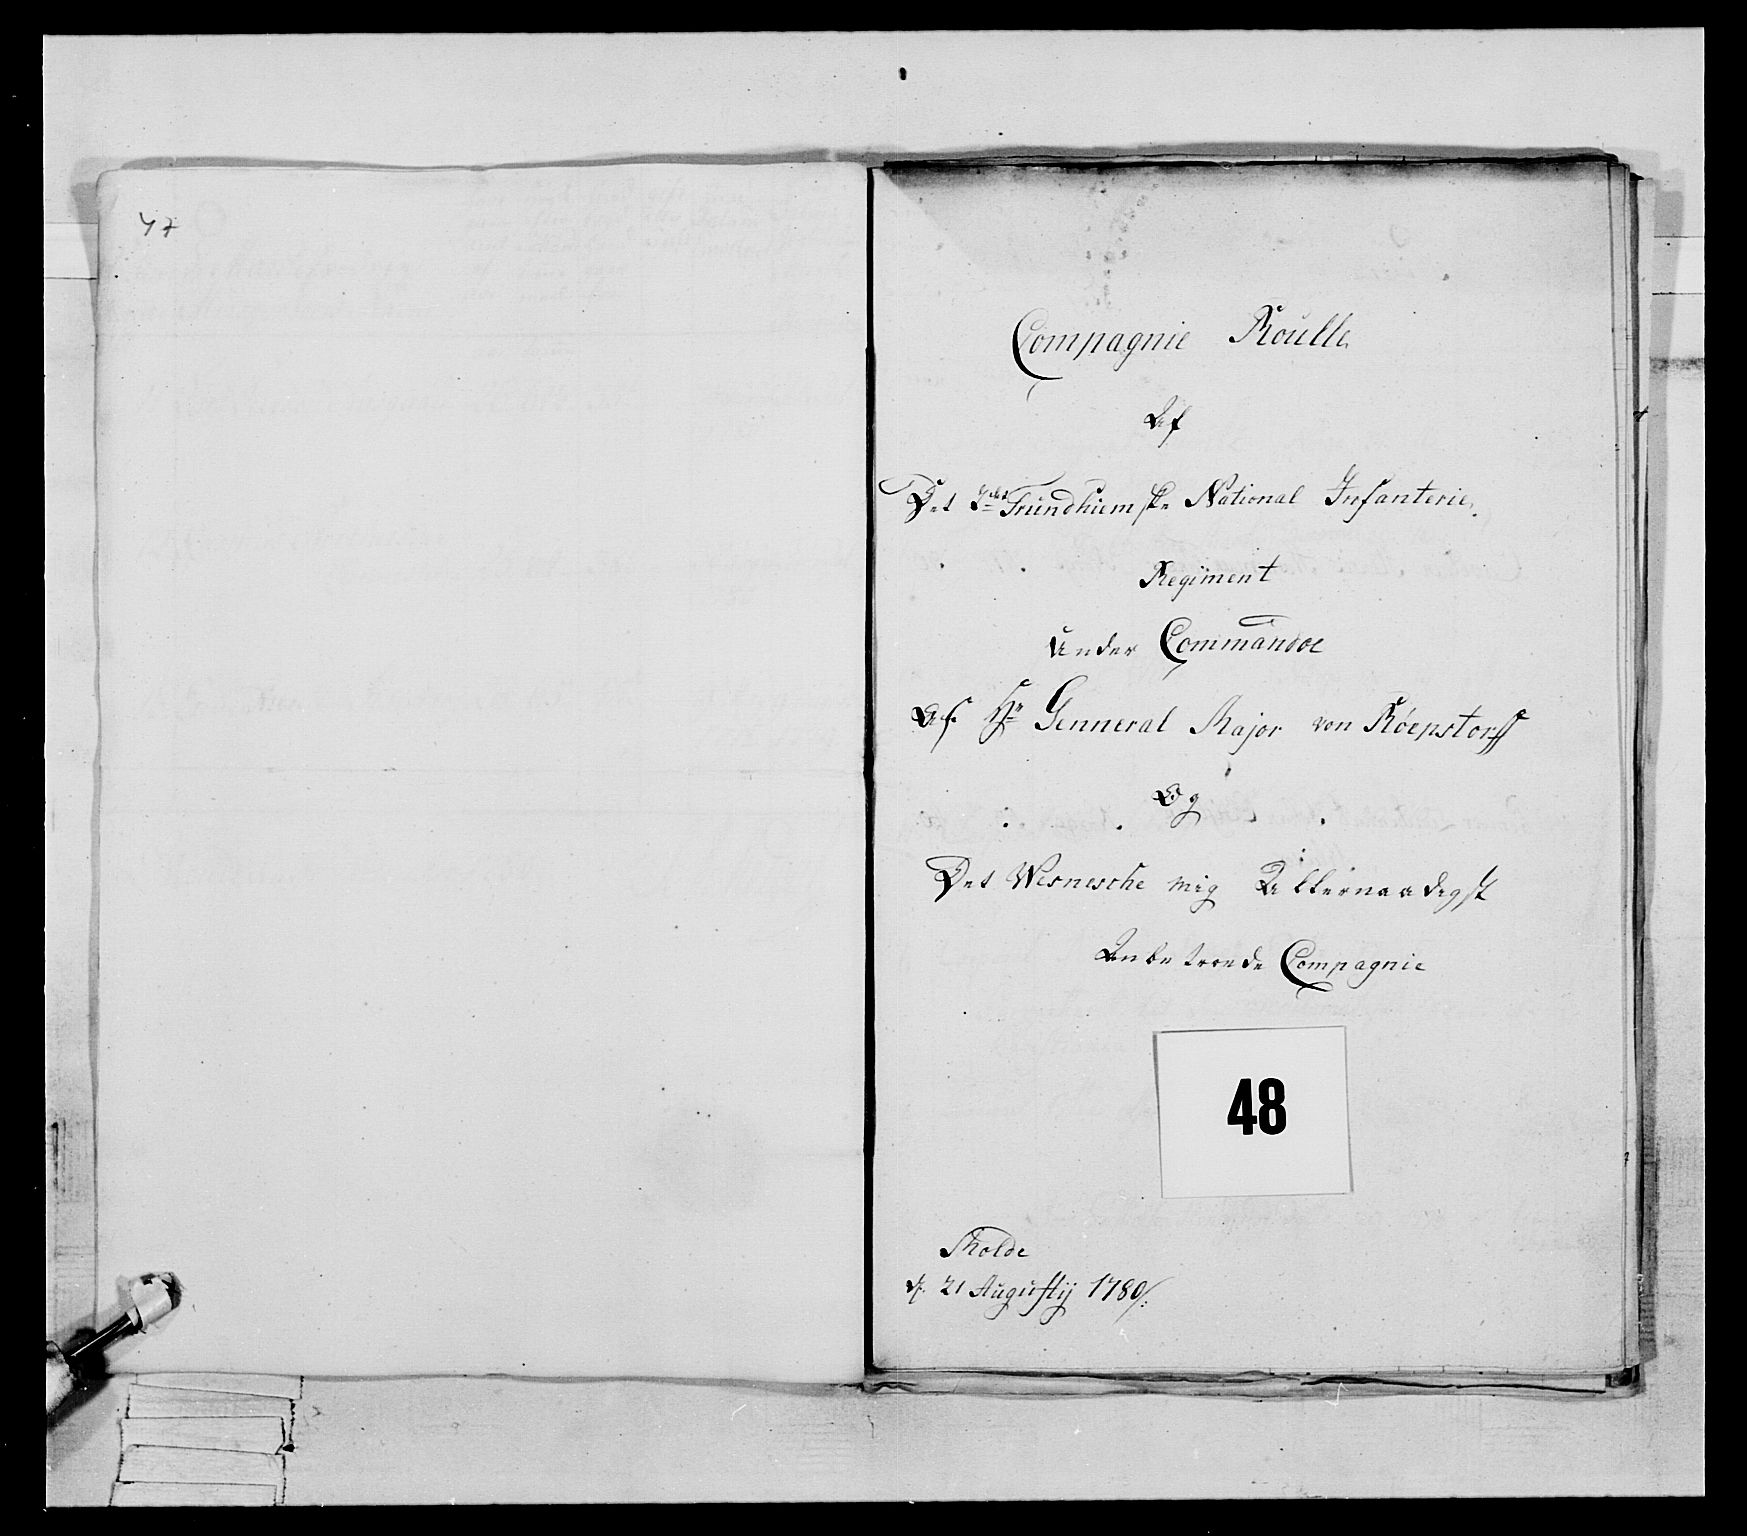 47
Compagnie Roulle
Af
Det 2det Trundhiemske National Infanterie
Regiment
Under Commandoe
Af Hr Genneral Major von Röepstorff
Og
Det Wesnesche mig Allernaadigst
Anbetroede Compagnie
48
Molde
d. 21 Augustij 1780/: